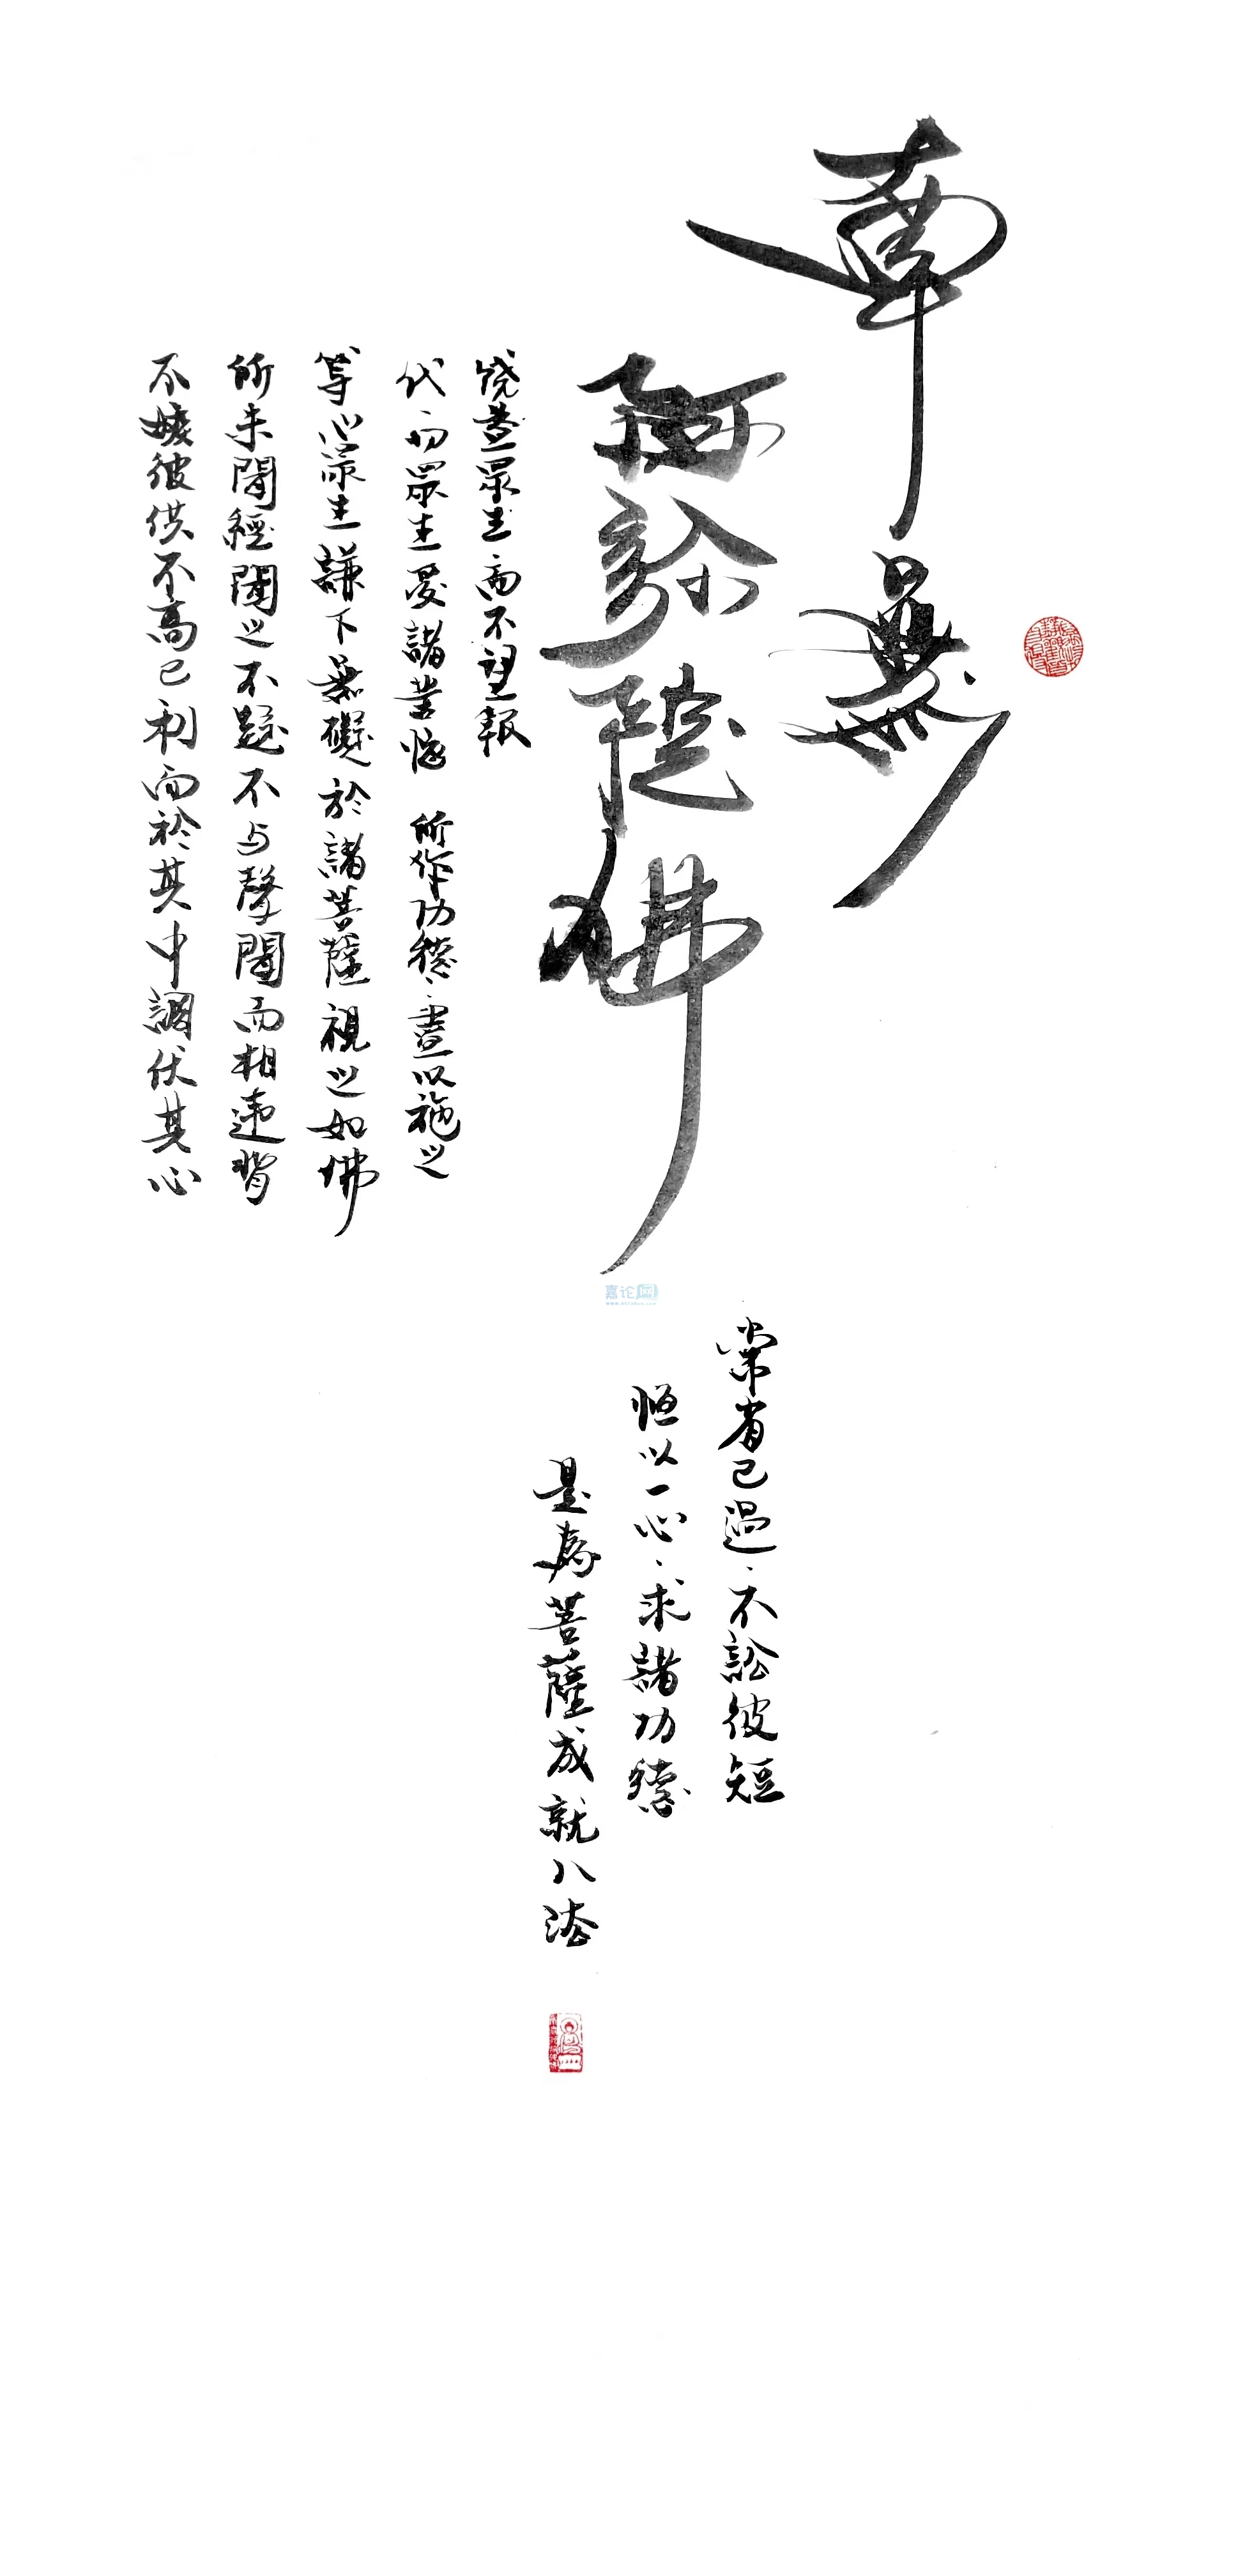 南無
阿彌陀佛
饒益眾生而不望報
代一切眾生受諸苦惱 所作功德、盡以施之
等心眾生謙下無礙於諸菩薩視之如佛
所未聞經聞之不疑不与聲聞而相違背
不嫉彼供不高己利而於其中調伏其心
常省己過、不訟彼短
恒以一心、求諸功德
是為菩薩成就八法
嘉论网